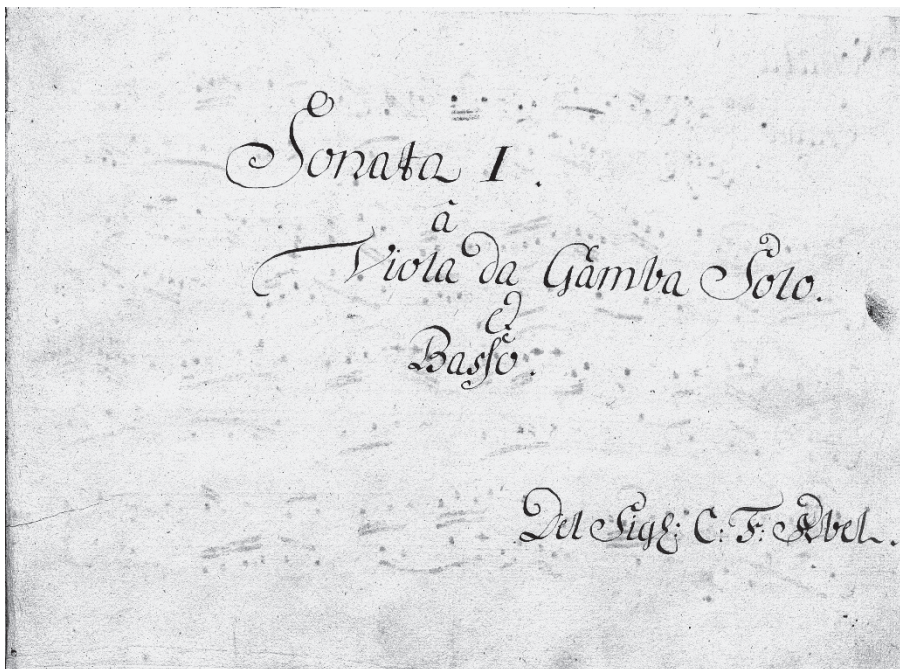 Sonata I.
â
Viola da Gamba Solo.
è
Basso.
Del Sigl: C: F: Abel.